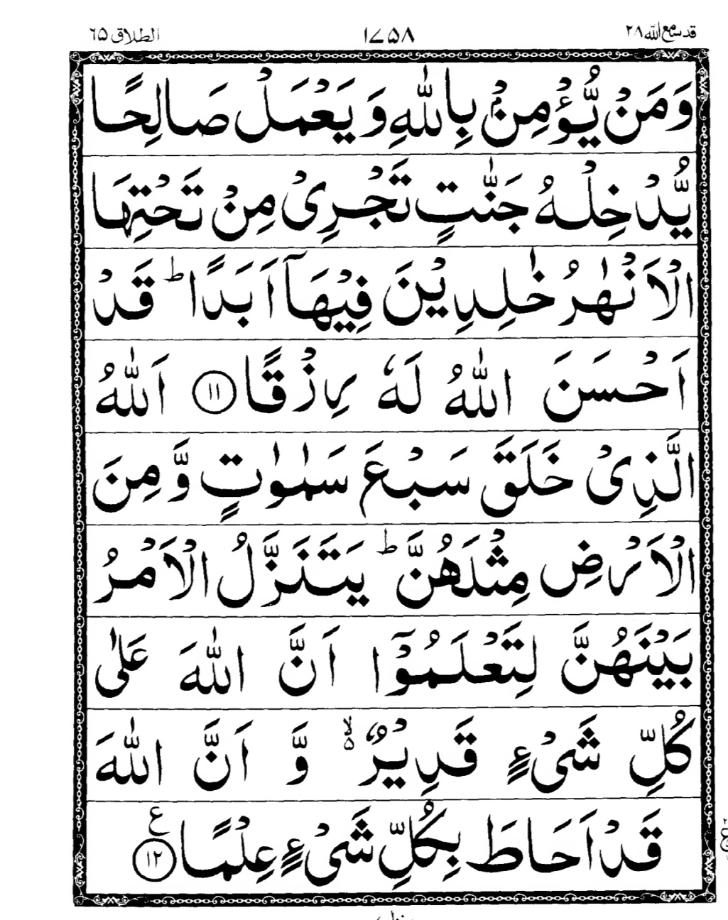 قد سمع الله ٢٨ ١٧٥٨ الطلاق ٦٥
وَمَنْ يُّؤْمِنْۢ بِاللّٰهِ وَ يَعْمَلْ صَالِحًا
يُّدْخِلْهُ جَنّٰتٍ تَجْرِىْ مِنْ تَحْتِهَا
الْاَنْهٰرُ خٰلِدِيْنَ فِيْهَاۤ اَبَدًا ؕ قَدْ
اَحْسَنَ اللّٰهُ لَهٗ رِزْقًا ﴿١١﴾ اَللّٰهُ
الَّذِىْ خَلَقَ سَبْعَ سَمٰوٰتٍ وَّ مِنَ
الْاَرْضِ مِثْلَهُنَّ ؕ يَتَنَزَّلُ الْاَمْرُ
بَيْنَهُنَّ لِتَعْلَمُوْۤا اَنَّ اللّٰهَ عَلٰى
كُلِّ شَىْءٍ قَدِيْرٌ ۙ۬ وَّ اَنَّ اللّٰهَ
قَدْ اَحَاطَ بِكُلِّ شَىْءٍ عِلْمًا ﴿١٢﴾ ع